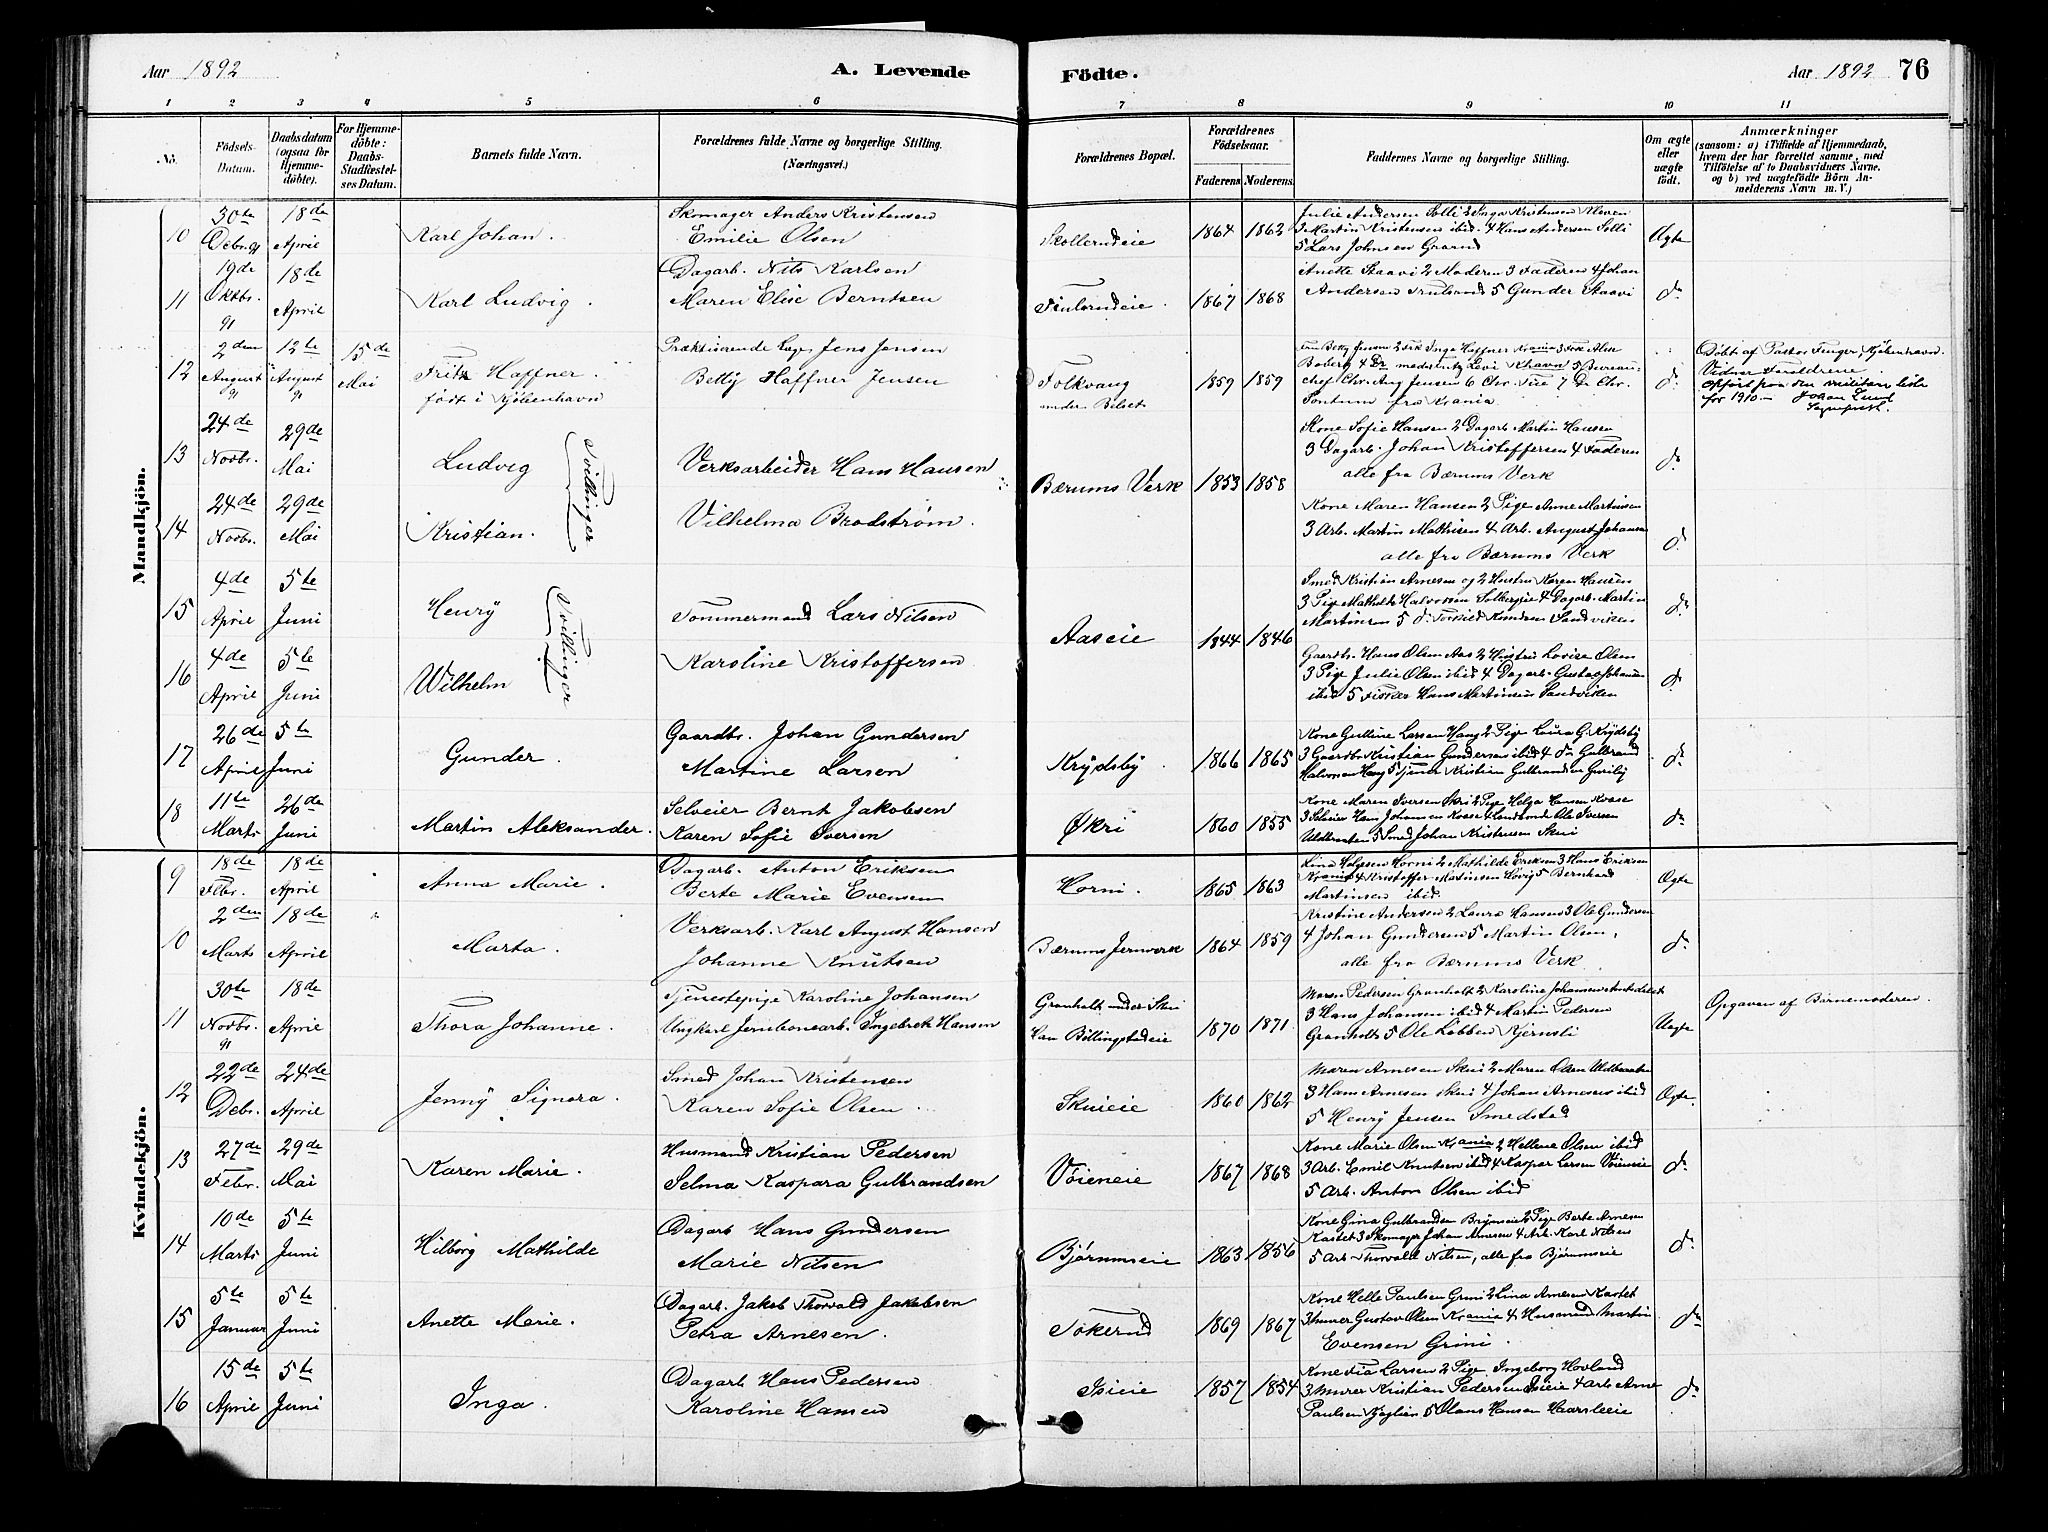 Aar 1892
A. Levende
Födte.
Aar 1892 76
1 2 3 4 5 6 7 8 9 10 11
No.
Födsels-Datum.
Daabsdatum (ogsaa for Hjemme-döbte).
For Hjemme-döbte: Daabs-Stadfæstel-ses Datum.
Barnets fulde Navn.
Forældrenes fulde Navne og borgerlige Stilling. (Næringsvei.)
Forældrenes Bopæl.
Forældrenes Födselsaar.
Faderens Moderens.
Faddernes Navne og borgerlige Stilling.
Om ægte eller uægte födt.
Anmærkninger
(saasom: a) i Tilfælde af Hjemmedaab,
hvem der har forrettet samme, med
Tilföielse af to Daabsvidners Navne.
og b) ved uægtefödte Börn An-
melderens Navn m. V.)
Mandkjön.
10 30te Debr. 91 18de April
Karl Johan.
Skomager Anders Kristensen
Emilie Olsen
1864 1862
Julie Andersen Solli 2 Inga Kristensen Kleven
3 Martin Kristensen ibid. 4 Hans Andersen Solli
5 Lars Johnsen
Ægte
11 19de Oktbr. 91 18de April
Karl Ludvig.
Dagarb. Nils Karlsen
Maren Elise Berntsen
1867 1868
Anette Staavi 2 Moderen 3 Faderen 4 Johan
Andersen 5 Gunder Staavi
do
12 2den August 91 12te August 91 15de Mai
Fritz Haffner.
født i Kjøbenhavn
Praktiserende Læge Jens Jensen
Betty Haffner Jensen
Folkvang
under Bilset
1859 1859
Fru Betty Jensen 2 Frk Inga Haffner Krania 3 Frk Alse
Boberg 4 Dr Levi Khavn 5 Bureau-
chef Chr. Aug Jensen 6 Chr. 7 Dr Chr.
Sontum fra Krania.
d.
Døbt af Pastor Fenger, Kjøbenhavn.
Vidner Forældrene.
opført paa den militære liste
for 1910.— Johan Lund
Sogneprest.
13 24de Novbr. 29de Mai
Ludvig
Tvillinger
Verksarbeider Hans Hansen
Bærums Verk
1853 1858
Kone Sofie Hansen 2 Dagarb. Martin Hansen
3 Dagarb. Johan Kristoffersen 4 Faderen
alle fra Bærums Verk
d.
14 24de Novbr. 29de Mai
Kristian.
Vilhelma Brodstrøm.
Kone Maren Hansen 2 Pige Anne Martinsen
3 Arb. Martin Mathisen 4 Arb. August Johansen
alle fra Bærums Verk
d.
15 4de April 5te Juni
Henry
Tvillinger
Tømmermand Lars Nilsen
Aaseie
1844 1846
Smed Kristian Arnesen og 2 Hustru Karen Hansen
3 Pige Mathilde Halvorsen Solbergeie 4 Dagarb. Martin
Martinsen 5 d. Torkild Knudsen Sandviken
do
16 4de April 5te Juni
Wilhelm
Karoline Kristoffersen
Gaardbr. Hans Olsen Aas 2 Hustru Lovise Olsen
3 Pige Julie Olsen ibid 4 Dagarb. Gustav Johansen
ibid 5 Fisker Hans Martinsen Sandviken
d.
17 26de April 5te Juni
Gunder.
Gaardbr. Johan Gundersen
Martine Larsen
Krydsby.
1866 1865
Kone Gulline Larsen Haug 2 Pige Laura G. Krydsby
3 Gaardbr. Kristian Gundersen ibid 4 do Gulbrand
Halvorsen Haug 5 Tjener Kristian Gulbrandsen Guriby
d.
18 11te Marts 26de Juni
Martin Aleksander.
Selveier Bernt Jakobsen
Karen Sofie Iversen
Økri
1860 1855
Kone Maren Iversen Økri 2 Pige Helga Hansen
3 Selveier Hans Johansen 4 Ole Iversen
5 Smed Johan Kristensen Skui
do
Kvindekjön.
9 18de Febr. 18de April
Anna Marie.
Dagarb. Anton Eriksen
Berte Marie Evensen
Horni.
1865 1863
Lina Helgesen Horni 2 Mathilde Eriksen 3 Hans Eriksen
Krania 4 Kristoffer Martinsen Høvig 5 Bernhard
Martinsen ibid.
Ægte
10 2den Marts 18de April
Marta.
Verksarb. Karl August Hansen
Johanne Knutsen
Bærums Jernverk
1864 1859
Kristine Andersen 2 Laura Hansen 3 Ole Gundersen
4 Johan Gundersen 5 Martin Olsen,
alle fra Bærums Verk.
d.
11 30te Novbr. 91 18de April
Thora Johanne.
Tjenestepige Karoline Johansen
Ungkarl Jernbanearb. Ingebret Hansen
Granholt under Skui
Han Billingstadeie
1870 1871.
Maren Pedersen Granholt 2 Karoline Johansen
3 Hans Johansen ibid 4 Martin Pedersen
Granholt 5 Ole Løbben Kjernsli
Uægte
Opgaven af Barnemoderen.
12 22de Debr. 24de April
Jenny Signora.
Smed Johan Kristensen
Karen Sofie Olsen.
Skuieie
1860 1862
Maren Arnesen Skui 2 Maren Olsen
3 Hans Arnesen Skui 4 Johan Arnesen ibid
5 Henry Jensen Smedstad
Ægte.
13 27de Febr. 29de Mai
Karen Marie.
Husmand Kristian Pedersen
Selma Kaspara Gulbrandsen
Vøieneie
1867 1868
Kone Marie Olsen Krania 2 Hellene Olsen ibid
3 Arb. Emil Knutsen ibid 4 Kaspar Larsen Vøieneie
5 Arb. Anton Olsen ibid
d.
14 10de Marts 5te Juni
Hilborg Mathilde
Dagarb Hans Gundersen
Marie Nilsen
Bjørumseie
1863 1856
Kone Gina Gulbrandsen Brynseie 2 Pige Berte Arnesen
Kastet 3 Skomager Johan Arnesen 4 Arb. Karl Nilsen
5 Arb Thorvald Nilsen, alle fra Bjørumseie
d.
15 5te Januar 5te Juni
Anette Marie.
Dagarb. Jakob Thorvald Jakobsen
Petra Arnesen.
Tokerud
1869 1867
Kone Helle Paulsen Grini 2 Lina Arnesen Kastet
3 Murer Gustav Olsen Krania 4 Husmand Martin
Evensen Grini.
do
16 15de April 5te Juni
Inga.
Dagarb Hans Pedersen
Karoline Hansen
Isieie
1857 1854
Kone Fia Larsen 2 Pige Ingeborg Hovland
3 Murer Kristian Pedersen Isieie 4 arb Arne
Paulsen 5 Olaus Hansen
do